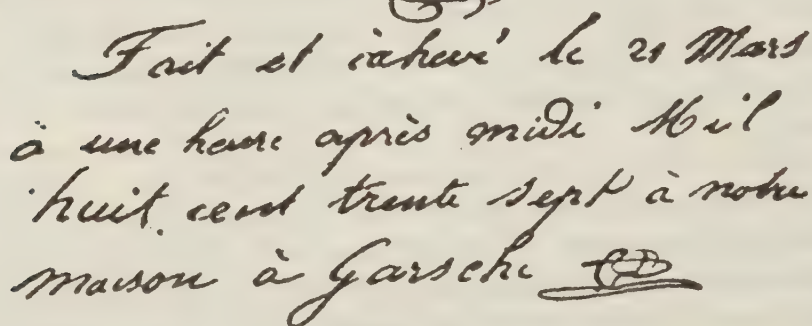 Fait et achevé le 21 Mars
à une heure après midi Mil
huit cent trente sept à notre
maison à Garsche